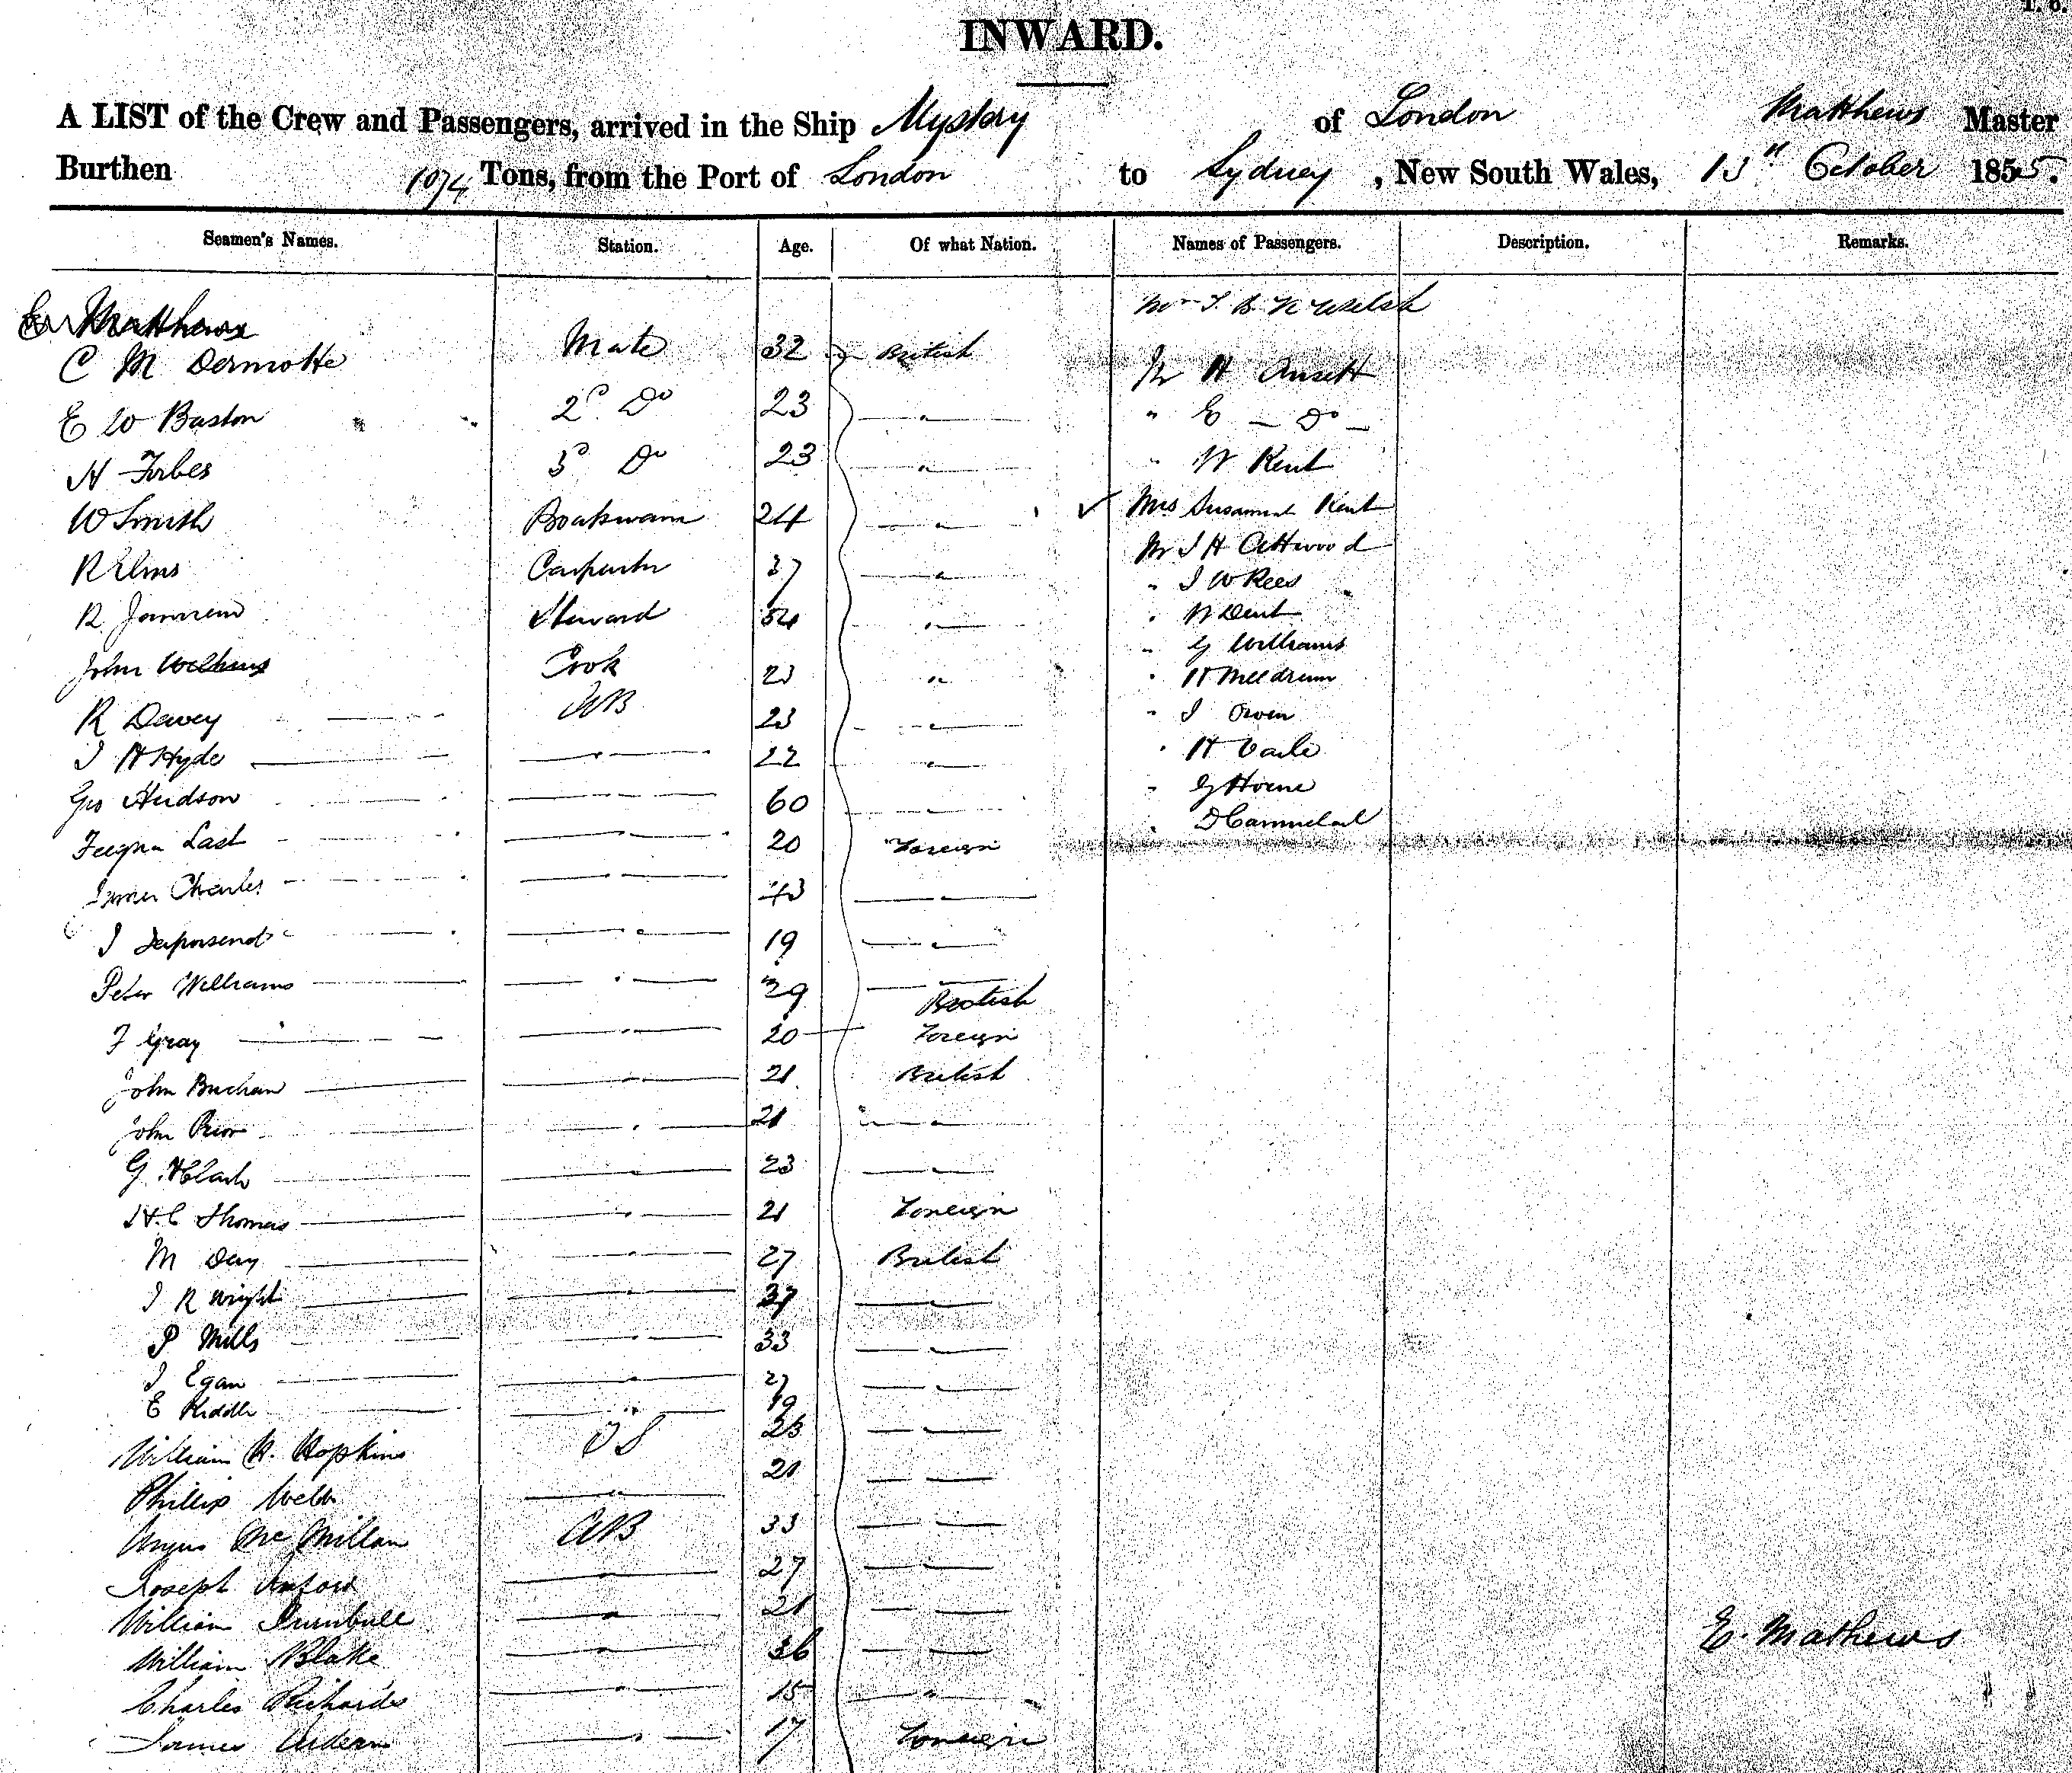 INWARD.
A LIST of the Crew and Passengers, arrived in the Ship Mystery of London Matthews Master
Burthen 1074 Tons, from the Port of London to Sydney, New South Wales, 13th October 1855.
Seamen's Names. Station. Age. Of what Nation. Names of Passengers. Description. Remarks.
Matthews
C M Dermotte Mate 32 British Mr H Ansett
E W Baston 2d Do 23 " " E — Do —
H Forbes 3d Do 23 " " W Kent
W Smith Boatswain 24 " Mrs Susannah Kent
Mr J H Attwood
R Elms Carpenter 37 " " J W Rees
R Steward 54 " " W Dent
" G Williams
John Cook 23 " " H Meldrum
R Davey AB 23 " " J Owen
J H Hyde " 22 " " H Vaile
Geo Hudson " 60 " " G Horne
Last " 20 Foreign
James Charles " 43 "
J " 19 "
Peter Williams " 29 " British
F Gray " 20 Foreign
John Buchan " 21 British
John Prior " 21 "
G Clark " 23 "
H. C Thomas " 21 Foreign
M Day " 27 British
J R Wright " 37 "
P Mills " 33 "
J Egan " 27 "
E Riddle " 19
William H. Hopkins OS 25 "
Phillip Webb " 21 "
Angus McMillan AB 33 "
Joseph " 27 "
William Turnbull " 21 "
E. Mathews
William Blake " 36 "
Charles Richards " 15 "
James " 17 Foreign